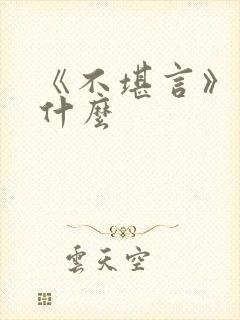 《不堪言》
什麼
雲天空